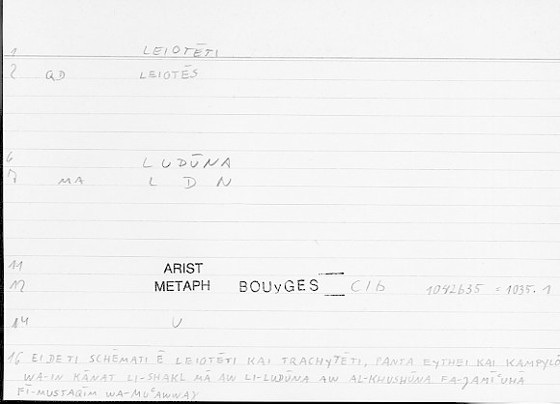 1 LEIOTĒTI
2 QD LEIOTĒS
6 LUDŪNA
7 MA L D N
11 ARIST
12 METAPH BOUyGES C16 1042b35 = 1035.1
14 U
16 EI DE TI SCHĒMATI Ē LEIOTĒTI KAI TRACHYTĒTI, PANTA EYTHEI KAI KAMPYLŌ
WA-IN KĀNAT LI-SHAKL MĀ AW LI-LUDŪNA AW AL-KHUSHŪNA FA-JAMĪʿUHĀ
FĪ-MUSTAQĪM WA-MUʿAWWAJ